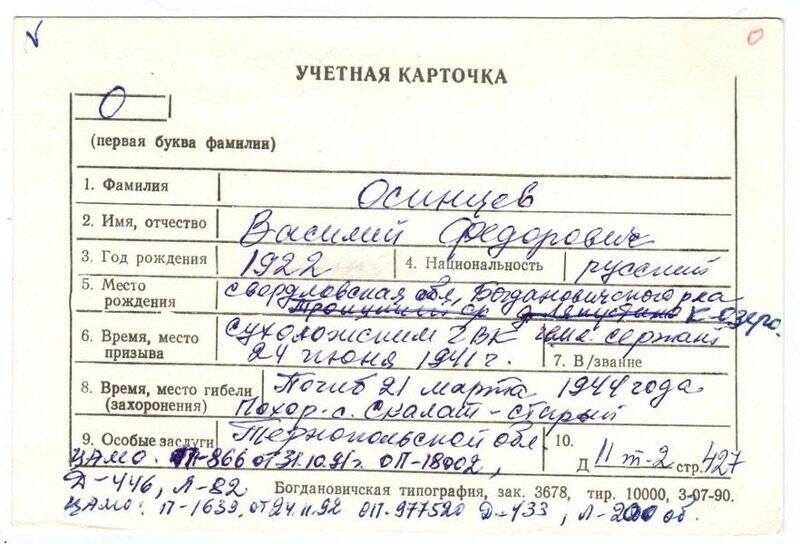 УЧЕТНАЯ КАРТОЧКА
О
(первая буква фамилии)
1. Фамилия Осинцев
2. Имя, отчество Василий Федорович
3. Год рождения 1922 4. Национальность русский
5. Место рождения Свердловская обл, Богдановичского р-на
К-озеро.
6. Время, место призыва Сухоложским ГВК
24 июня 1941 г. 7. В/звание сержант
8. Время, место гибели (захоронения) Погиб 21 марта 1944 года
Похор. с. Скалат-Старый
9. Особые заслуги Тернопольской обл 10.
ЦАМО. П-866 от 31.10.91г. ОП-18002, Д 11 т-2 стр. 427
Д-446, Л-82
Богдановичская типография, зак. 3678, тир. 10000, 3-07-90.
ЦАМО: П-1639, от 24.11.92 ОП-977520 Д-433, Л-200 об.